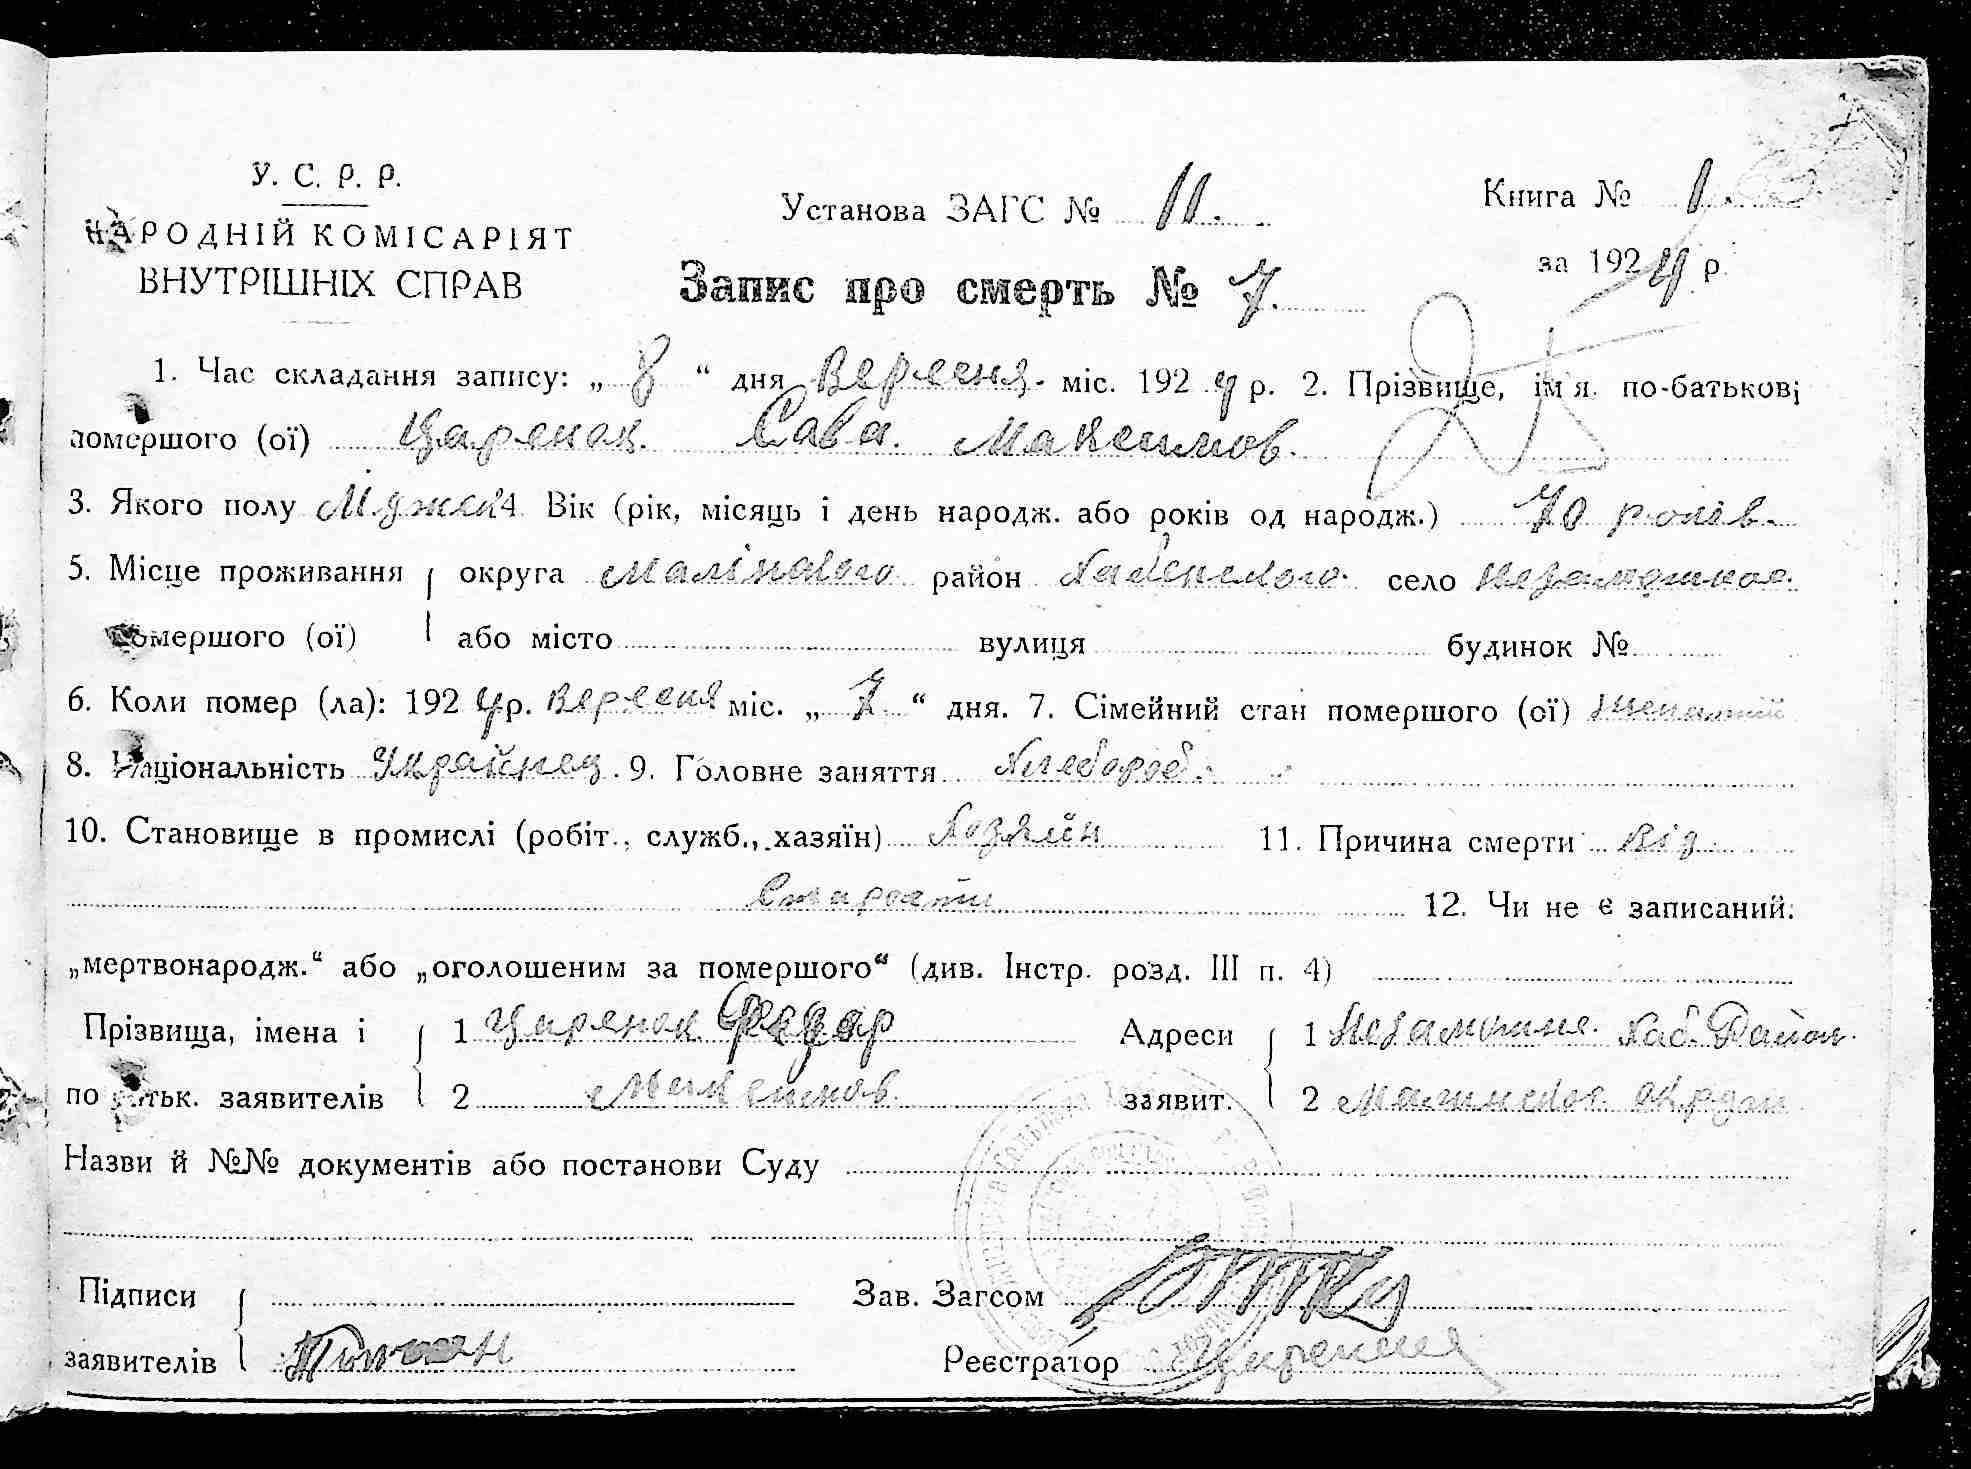 У. С. Р. Р.
НАРОДНІЙ КОМІСАРІЯТ
ВНУТРІШНІХ СПРАВ
Установа ЗАГС № 11.
Книга № 1.
за 1924 р.
Запис про смерть № 7.
1. Час складання запису: „ 8 “ дня Вересня. міс. 1924 р. 2. Прізвище, імя. по-батькові
помершого (ої) Царенок. Сава. Максимов.
3. Якого полу Мужск 4. Вік (рік, місяць і день народж. або років од народж.) 70 років.
5. Місце проживання округа Малінского район Хабенского. село Незаможное.
помершого (ої) або місто вулиця будинок №
6. Коли помер (ла): 1924 р. Вересня міс. „ 7 “ дня. 7. Сімейний стан помершого (ої) женатий
8. Національність Украйнец. 9. Головне заняття Хлебороб.
10. Становище в промислі (робіт., служб., хазяїн) Хозяйн 11. Причина смерти Від
Старости 12. Чи не є записаний:
„мертвонародж.“ або „оголошеним за помершого“ (див. Інстр. розд. III п. 4)
Прізвища, імена і 1 Царенок Федор Адреси 1 Незаможне. Хаб. Район.
по батьк. заявителів 2 Максимов. заявит. 2 Малинской округи
Назви й №№ документів або постанови Суду
Підписи Зав. Загсом
заявителів Реєстратор